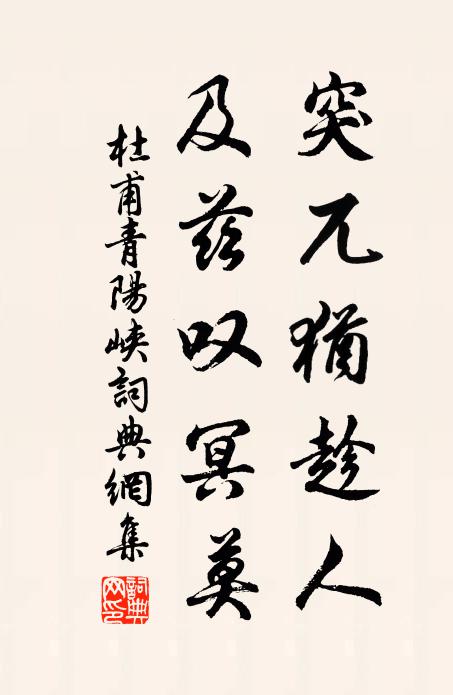 突兀猶趁人
及茲叹冥莫
杜甫青陽峽詞典網集
詞典网印